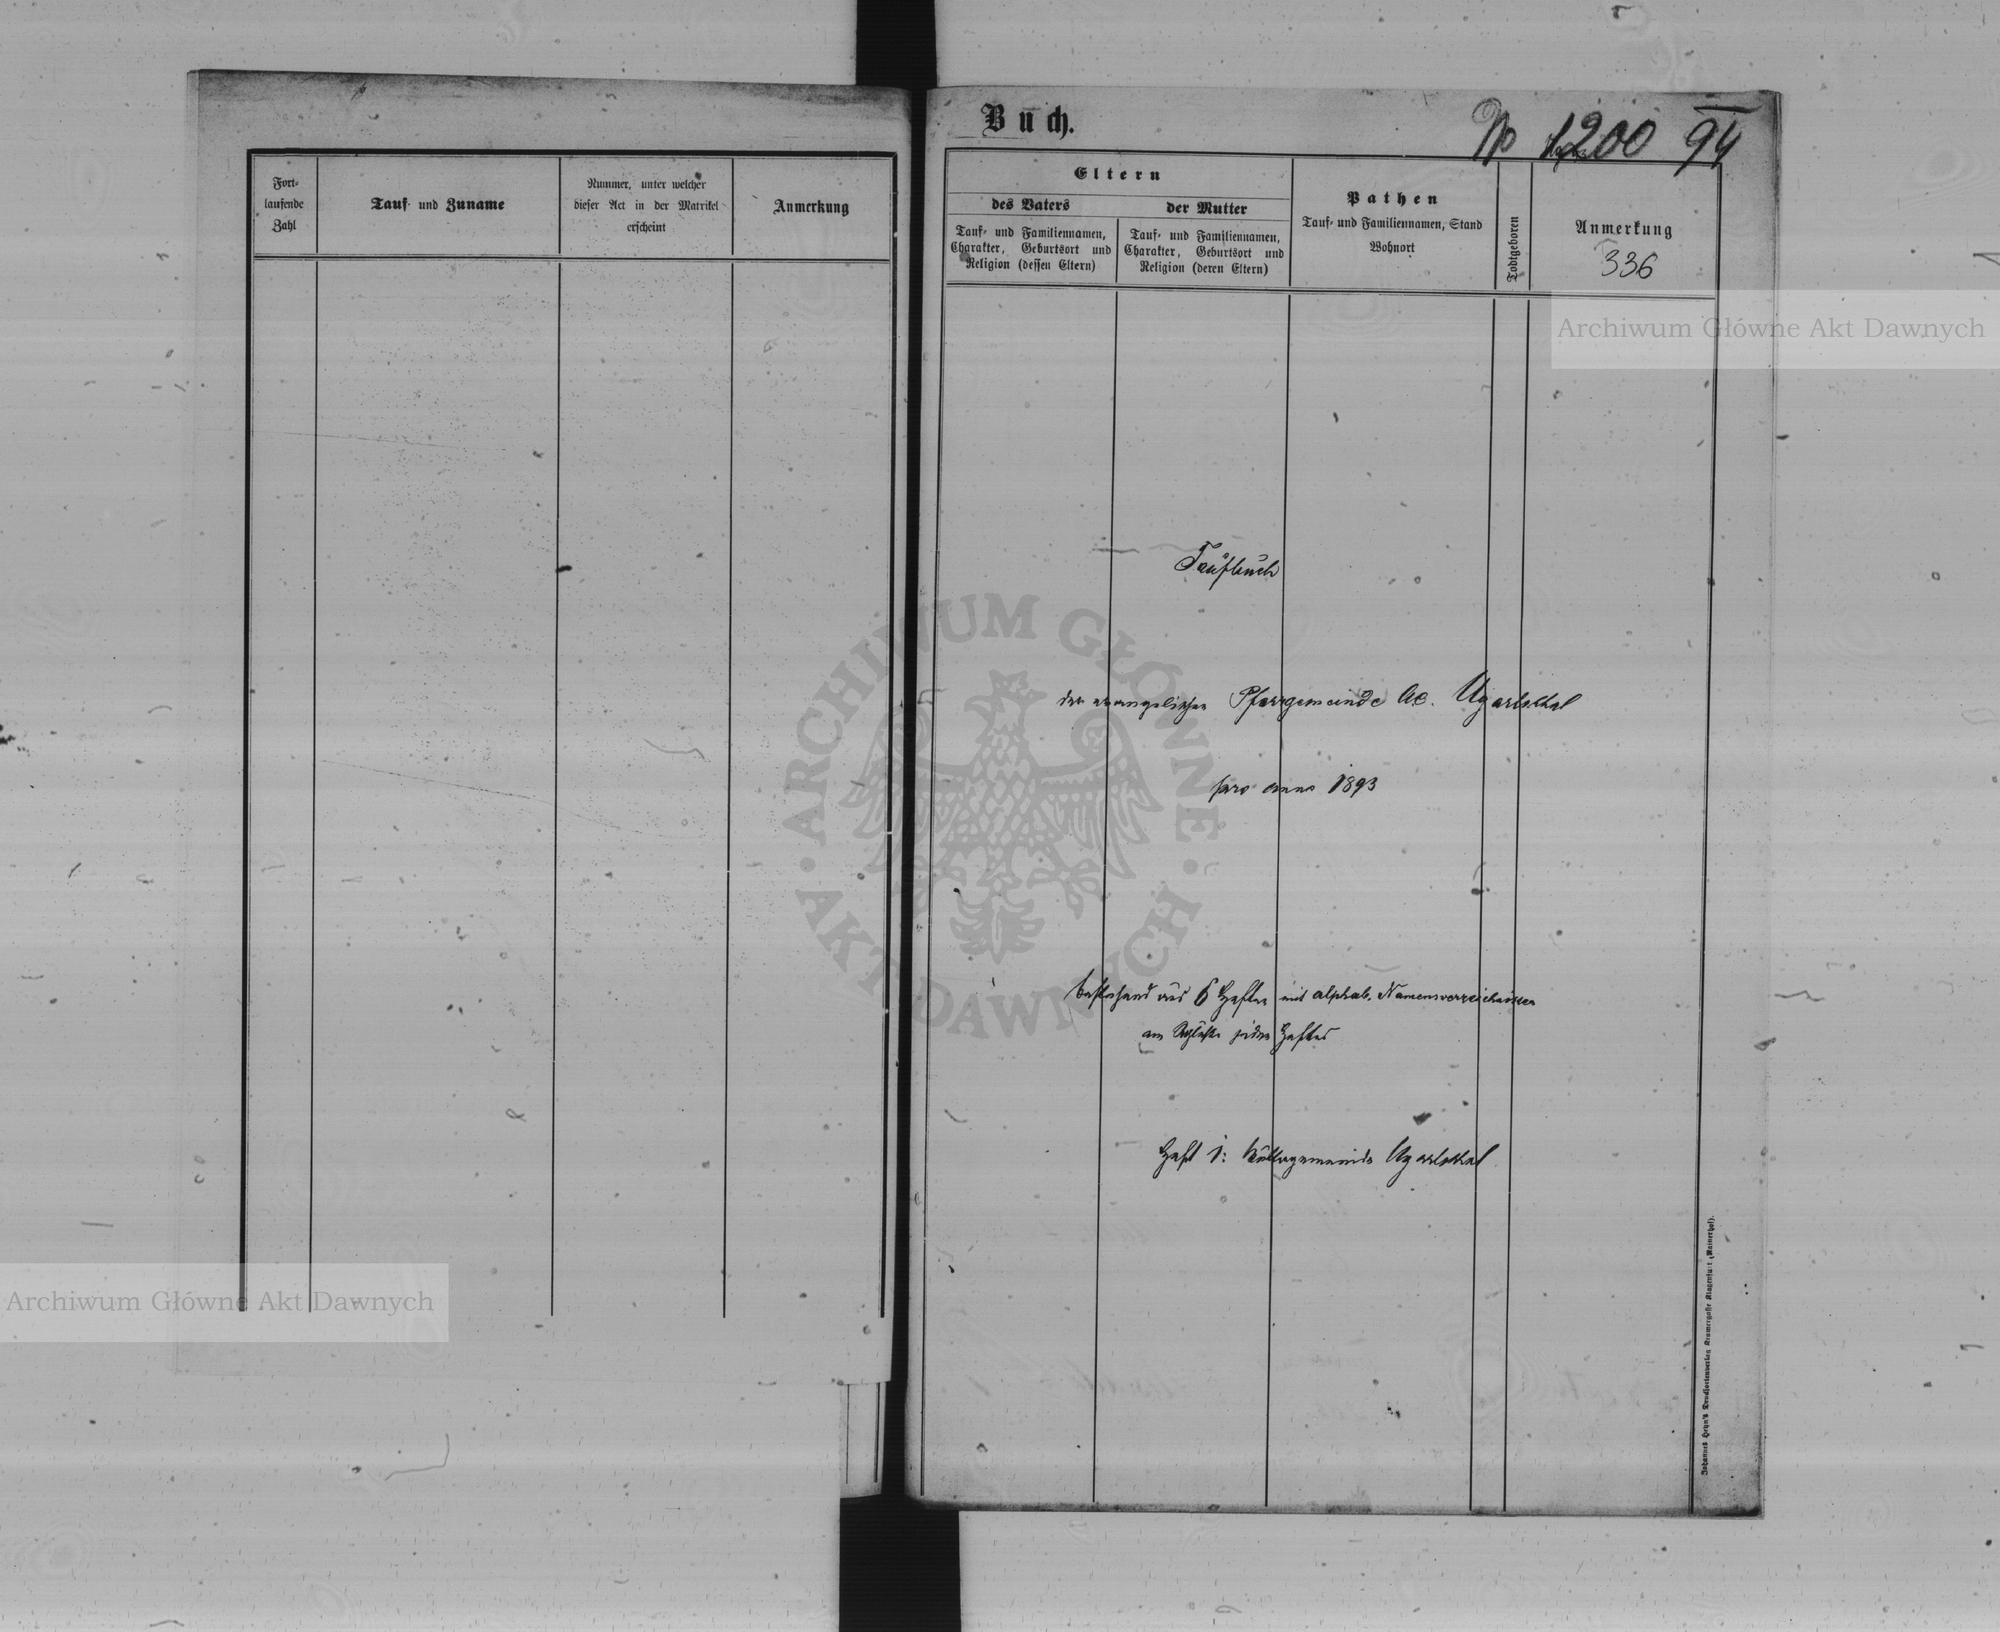 Fort-
laufende
Zahl
Tauf- und Zuname
Nummer, unter welcher
dieser Act in der Matrikel
erscheint
Anmerkung
Buch.
No 1200 94
Eltern
des Vaters
Tauf- und Familiennamen,
Charakter, Geburtsort und
Religion (dessen Eltern)
der Mutter
Tauf- und Familiennamen,
Charakter, Geburtsort und
Religion (deren Eltern)
Pathen
Tauf- und Familiennamen, Stand
Wohnort
Todtgeboren
Anmerkung
336
Archiwum Główne Akt Dawnych
Taufbuch
der evangelischen Pfarrgemeinde AC. Ugartsthal
pro anno 1893
bestehend aus 6 Heften mit alphab. Namensverzeichnissen
am Schluße jedes Heftes
Heft 1: Cultusgemeinde Ugartsthal
ARCHIWUM GŁÓWNE
AKT DAWNYCH
Archiwum Główne Akt Dawnych